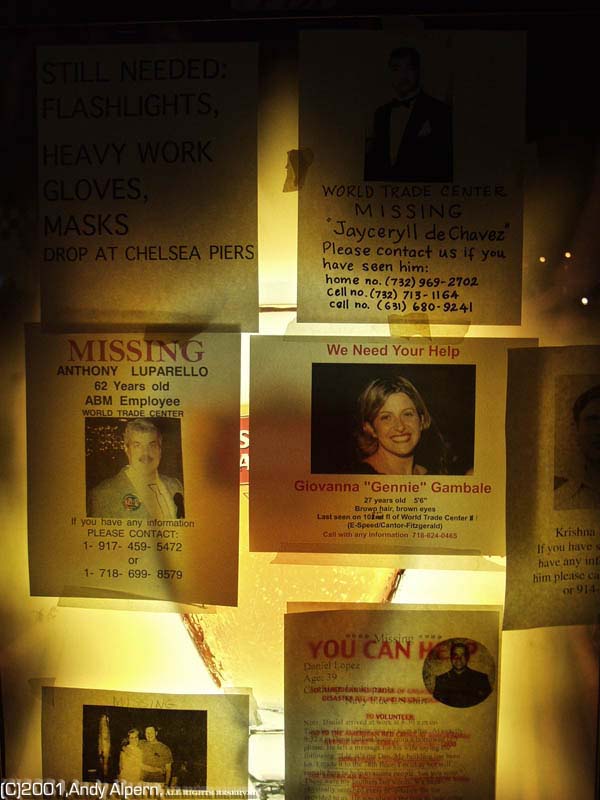 STILL NEEDED:
FLASHLIGHTS,
HEAVY WORK
GLOVES,
MASKS
DROP AT CHELSEA PIERS
WORLD TRADE CENTER
MISSING
"Jayceryll de Chavez"
Please contact us if you
have seen him:
home no. (732) 969-2702
Cell no. (732) 713-1164
cell no. (631) 680-9241
MISSING
ANTHONY LUPARELLO
62 Years old
ABM Employee
WORLD TRADE CENTER
If you have any information
PLEASE CONTACT:
1- 917- 459- 5472
or
1- 718- 699- 8579
We Need Your Help
Giovanna "Gennie" Gambale
27 years old 5'6"
Brown hair, brown eyes
Last seen on fl of World Trade Center
(E-Speed/Cantor-Fitzgerald)
Call with any information 718-624-0465
Krishna
If you have
have any
him please
or 914-
Missing
YOU CAN HELP
Daniel Lopez
Age: 39
DISASTER
TO VOLUNTEER:
MISSING
(C)2001,Andy Alpern, ALL RIGHTS RESERVED